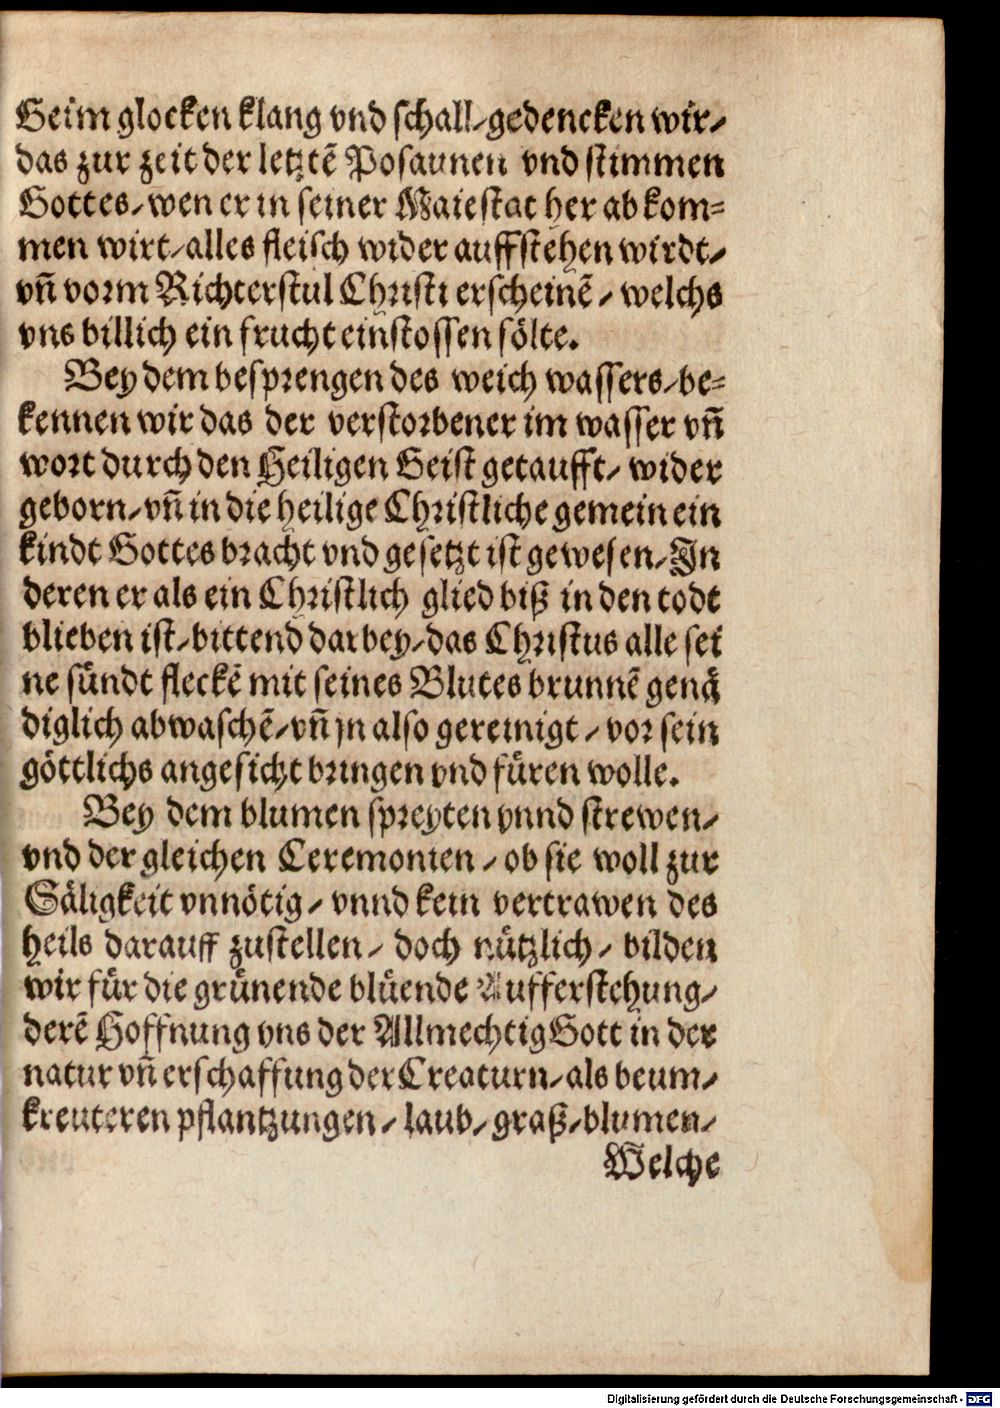 Beim glocken klang vnd schall/ gedencken wir/
das zur zeit der letztē Posaunen vnd stimmen
Gottes/ wen er in seiner Maiestat her ab kom=
men wirt/ alles fleisch wider auffstehen wirdt/
vñ vorm Richterstul Christi erscheinē / welchs
vns billich ein frucht einstossen sölte.
Bey dem besprengen des weich wassers/ be=
kennen wir das der verstorbener im wasser vñ
wort durch den Heiligen Geist getaufft/ wider
geborn/ vñ in die heilige Christliche gemein ein
kindt Gottes bracht vnd gesetzt ist gewesen/ In
deren er als ein Christlich glied biß in den todt
blieben ist/ bittend darbey/ das Christus alle sei
ne sündt fleckē mit seines Blutes brunnē genä
diglich abwaschē/ vñ jn also gereinigt / vor sein
göttlichs angesicht bringen vnd füren wolle.
Bey dem blumen spreyten vnnd strewen/
vnd der gleichen Ceremonien / ob sie woll zur
Säligkeit vnnötig / vnnd kein vertrawen des
heils darauff zustellen / doch nützlich / bilden
wir für die grünende blüende Aufferstehung/
derē Hoffnung vns der Allmechtig Gott in der
natur vñ erschaffung der Creaturn/ als beum/
kreuteren pflantzungen / laub/ graß/ blumen/
Welche
Digitalisierung gefördert durch die Deutsche Forschungsgemeinschaft - DFG